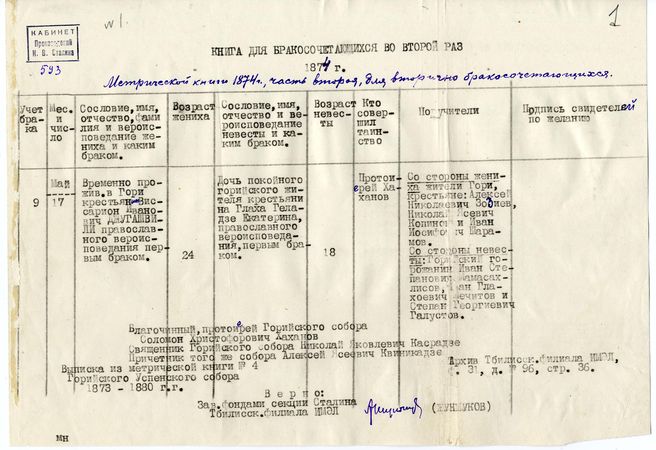 N 1.
1
КАБИНЕТ
Произведений
И. В. Сталина
593
КНИГА ДЛЯ БРАКОСОЧЕТАЮЩИХСЯ ВО ВТОРОЙ РАЗ
1874 г.
Метрической книги 1874 г., часть вторая, для вторично бракосочетающихся.
Учет
бра-
ка
Мес.
и
чис-
ло
Сословие, имя,
отчество, фами
лия и вероис-
поведание же-
ниха и каким
браком.
Возраст
жениха
Сословие, имя,
отчество и ве-
роисповедание
невесты и ка-
ким браком.
Возраст
невес-
ты
Кто
совер-
шил
таин-
ство
Поручители
Подпись свидетелей
по желанию
9
Май
17
Временно про-
жив. в Гори
крестьян-Вис-
сарион Ивано-
вич ДЖУГАШВИ-
ЛИ православ-
ного вероис-
поведания пер-
вым браком.
24
Дочь покойного
горийского жи-
теля крестья-
нина Глаха Гела-
дзе Екатерина,
православного
вероисповеда-
ния, первым бра-
ком.
18
Протои-
ерей Ха-
ханов
Со стороны жени-
ха жители Гори,
крестьяне: Алексей
Николаевич Зозиев,
Николай Ясевич
Копинов и Иван
Иосифович Шара-
мов.
Со стороны невес-
ты: Горийский го-
рожанин Иван Сте-
панович Мамасах-
лисов, Иван Гла-
хоевич Мечитов и
Степан Георгиевич
Галустов.
Благочинный, протоирей Горийского собора
Соломон Христофорович Хаханов
Священник Горийского собора Николай Яковлевич Касрадзе
Причетник того же собора Алексей Ясеевич Квиникадзе
Выписка из метрической книги № 4
Горийского Успенского собора
1873 - 1880 г.г.
Архив Тбилисск. филиала ИМЭЛ,
ф. 31, д. № 96, стр. 36.
Верно:
Зав. фондами секции Сталина
Тбилисск. филиала ИМЭЛ
(ЖУНШУКОВ)
мн